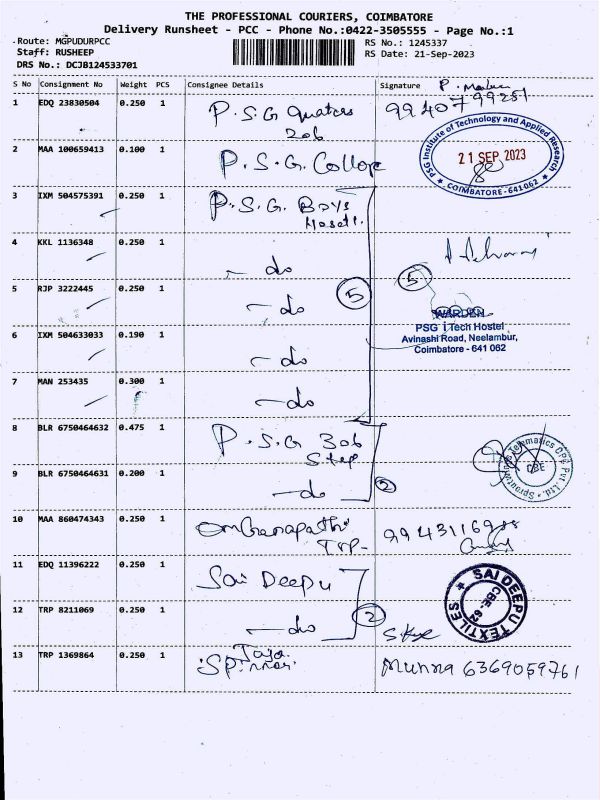 THE PROFESSIONAL COURIERS, COIMBATORE
Delivery Runsheet - PCC - Phone No.:0422-3505555 - Page No.:1
Route: MGPUDURPCC RS No.: 1245337
Staff: RUSHEEP RS Date: 21-Sep-2023
DRS No.: DCJB124533701
S No Consignment No Weight PCS Consignee Details Signature
1 EDQ 23830504 0.250 1 P.S.G Quaters 9940799251
2 MAA 100659413 0.100 1 P.S.G. College
PSG Institute of Technology and Applied Research
21 SEP 2023
COIMBATORE - 641 062
3 IXM 504575391 0.250 1 P.S.G. Boys
4 KKL 1136348 0.250 1 - do
5 RJP 3222445 0.250 1 - do 5 5
WARDEN
PSG iTech Hostel
6 IXM 504633033 0.190 1 - do
Avinashi Road, Neelambur,
Coimbatore - 641 062
7 MAN 253435 0.300 1 - do
8 BLR 6750464632 0.475 1 P.S.G
Telematics OPC Pvt. Ltd.
CBE
9 BLR 6750464631 0.200 1 - do 2
10 MAA 860474343 0.250 1 TRP-
11 EDQ 11396222 0.250 1 Sai Deepu
SAI DEEPU TEXTILES
CBE-62
12 TRP 8211069 0.250 1 - do 2
13 TRP 1369864 0.250 1 Munna 6369059761